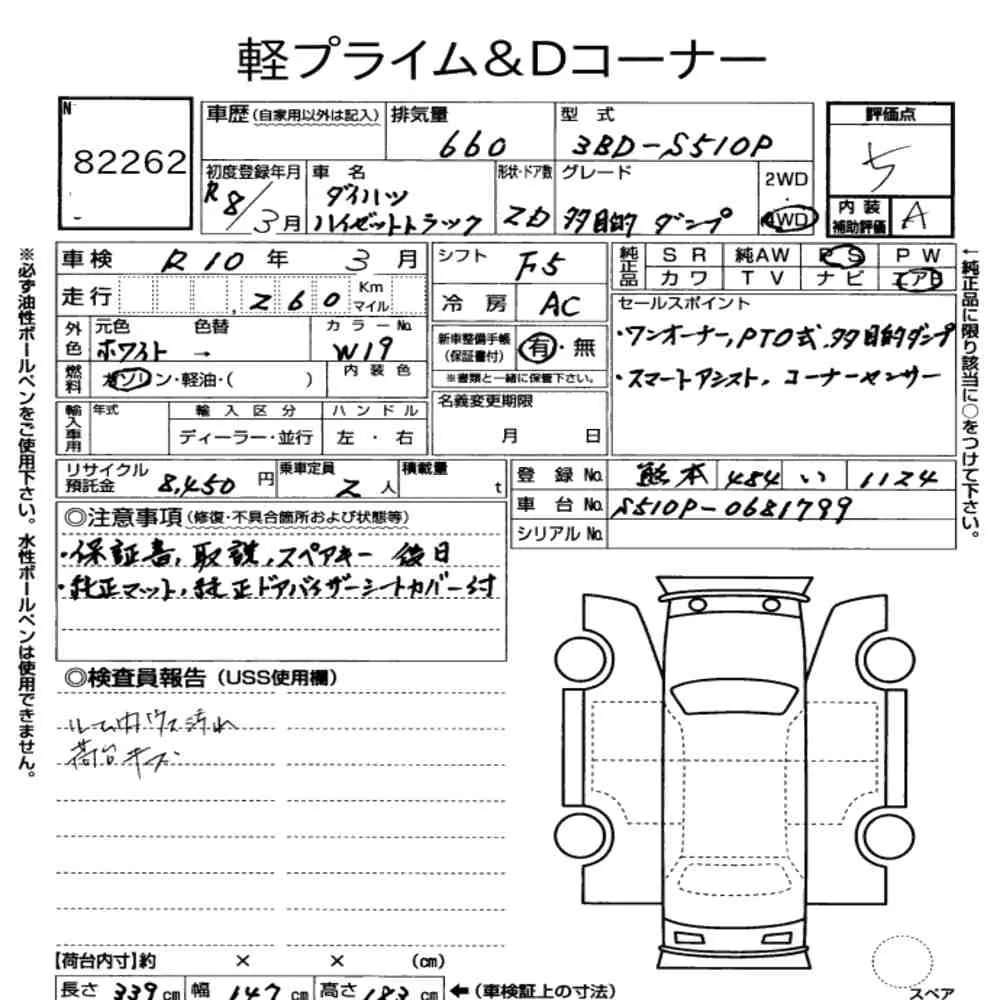 軽プライム&Dコーナー
N
82262
車歴 (自家用以外は記入)
排気量
660
型式
3BD-S510P
評価点
5
初度登録年月
R8/3月
車名
ダイハツ
ハイゼットトラック
形状・ドア数
2D
グレード
多目的 ダンプ
2WD
4WD
内装補助評価
A
車検 R10年 3月
走行 ,260 Km マイル
シフト
F5
冷房
AC
純正品
SR 純AW PS PW
カワ TV ナビ エアB
外色
元色 色替
ホワイト →
カラーNo.
W19
燃料
ガソリン・軽油・( )
内装色
新車整備手帳
(保証書付)
有・無
※書類と一緒に保管下さい。
セールスポイント
・ワンオーナー, PTO式, 多目的ダンプ
・スマートアシスト, コーナーセンサー
輸入車用
年式
輸入区分
ハンドル
ディーラー・並行
左・右
名義変更期限
月 日
リサイクル預託金
8,450円
乗車定員
2人
積載量
t
登録No. 熊本 484 い 1124
車台No. S510P-0681799
シリアルNo.
◎注意事項 (修復・不具合箇所および状態等)
・保証書, 取説, スペアキー 後日
・純正マット, 純正ドアバイザーシートカバー付
◎検査員報告 (USS使用欄)
ルーム内ハウス汚れ
荷台キズ
【荷台内寸】約 × × (cm)
長さ 339cm 幅 147cm 高さ 183cm ←(車検証上の寸法)
スペア
※必ず油性ボールペンをご使用下さい。水性ボールペンは使用できません。
←純正品に限り該当に○をつけて下さい。